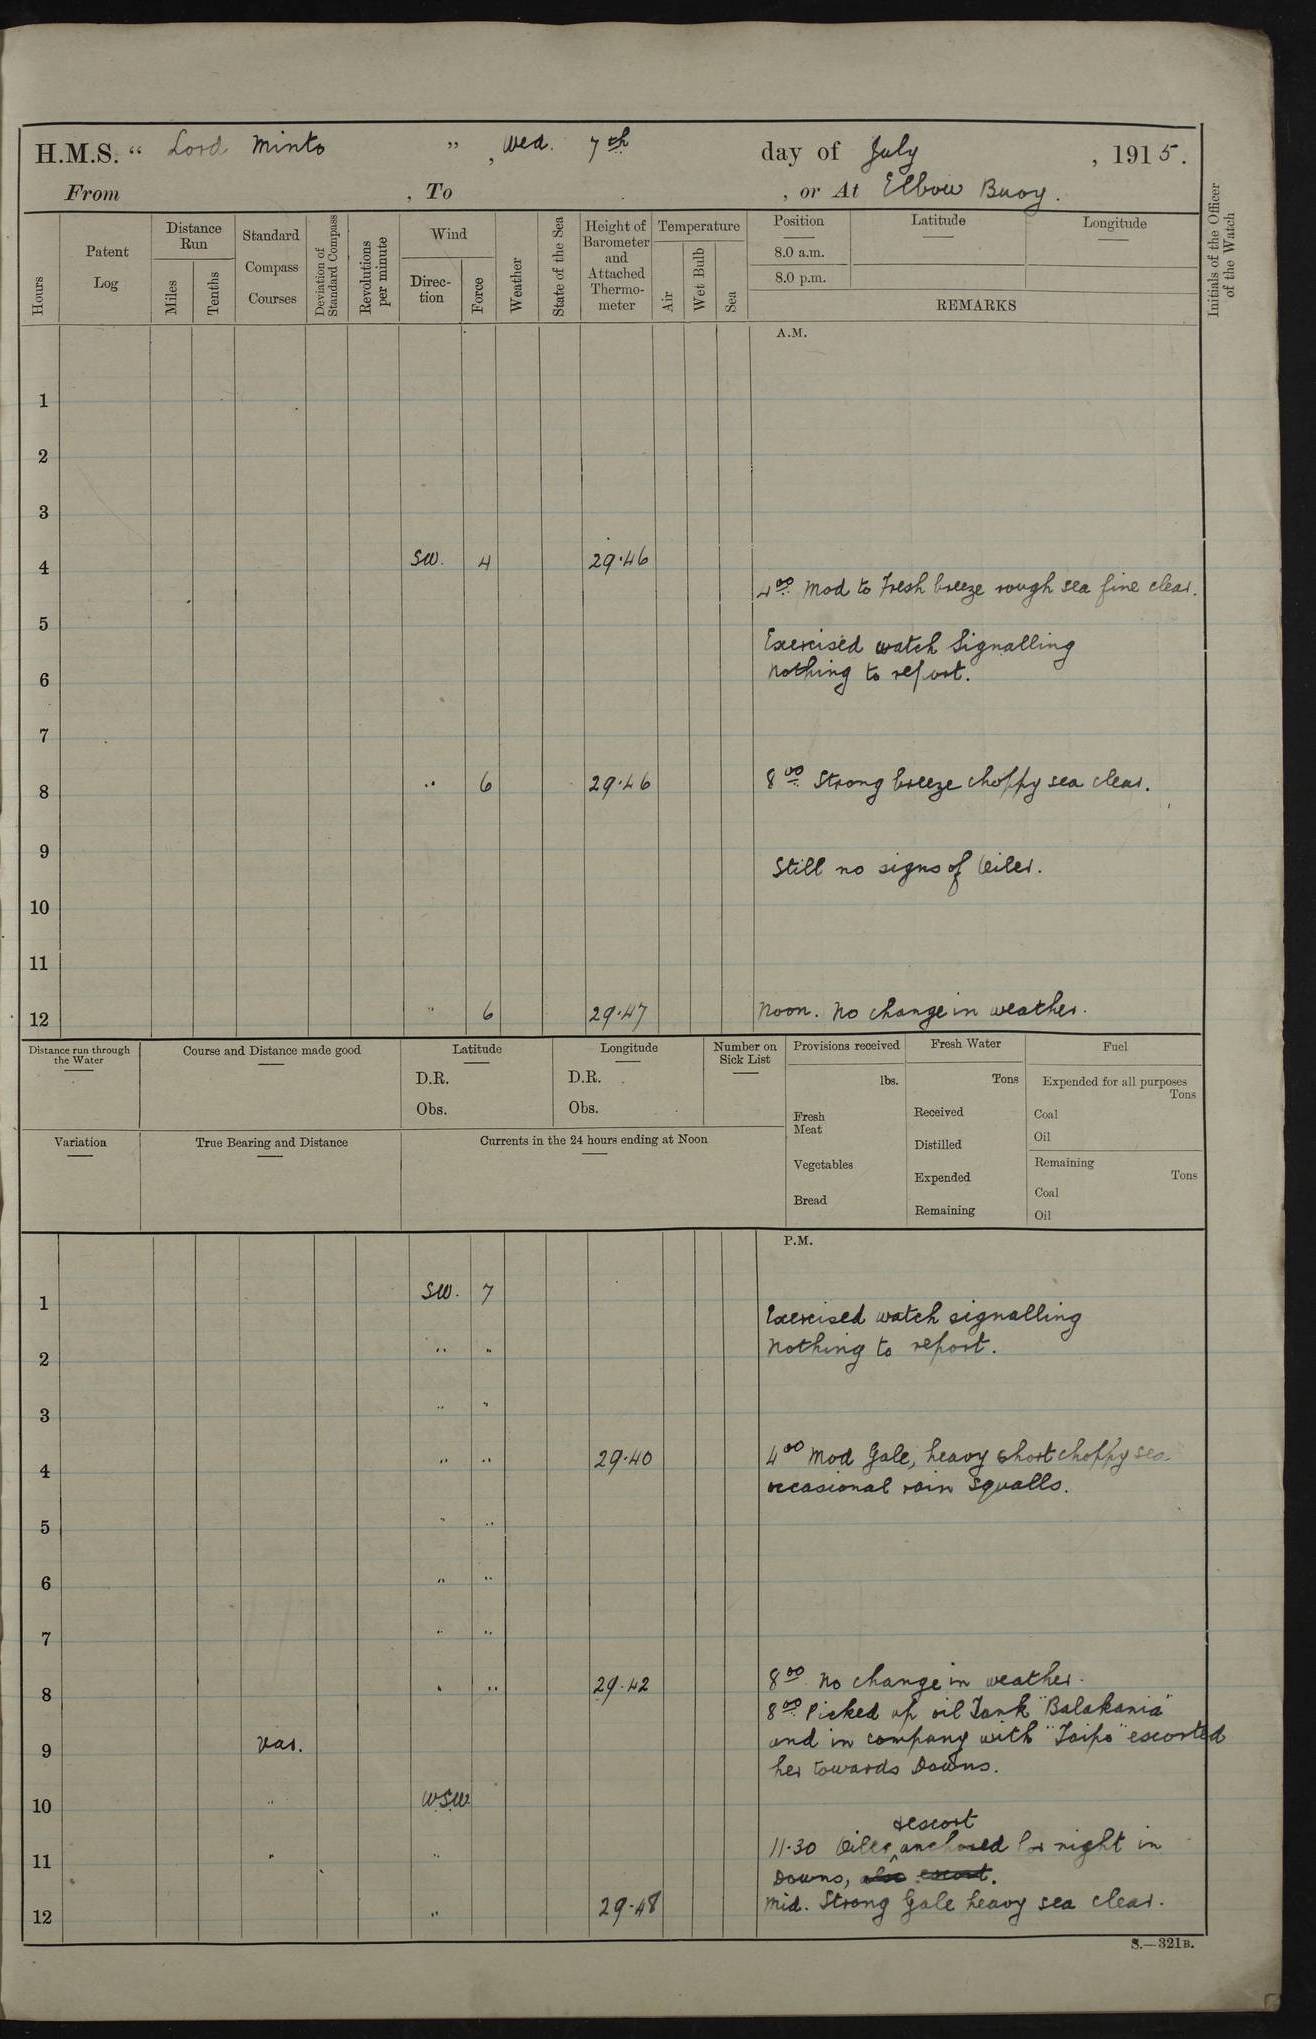 H.M.S. “ Lord Minto ” , Wed. 7th day of July , 1915.
From , To , or At Elbow Buoy.
Hours
Patent Log
Distance Run
Miles
Tenths
Standard Compass Courses
Deviation of Standard Compass
Revolutions per minute
Wind
Direc-tion
Force
Weather
State of the Sea
Height of Barometer and Attached Thermo-meter
Temperature
Air
Wet Bulb
Sea
Position Latitude Longitude
8.0 a.m.
8.0 p.m.
REMARKS
Initials of the Officer of the Watch
A.M.
1
2
3
4 SW. 4 29.46
4 00 Mod to Fresh breeze rough sea fine clear.
5
Exercised watch Signalling
6 Nothing to report.
7
8 " 6 29.46 8 00 Strong breeze choppy sea clear.
9
Still no signs of Oiler.
10
11
12 " 6 29.47 Noon. No change in weather.
Distance run through the Water
Course and Distance made good
Latitude
D.R.
Obs.
Longitude
D.R.
Obs.
Number on Sick List
Provisions received
lbs.
Fresh Meat
Vegetables
Bread
Fresh Water
Tons
Received
Distilled
Expended
Remaining
Fuel
Expended for all purposes
Tons
Coal
Oil
Remaining
Tons
Coal
Oil
Variation
True Bearing and Distance
Currents in the 24 hours ending at Noon
P.M.
1 SW. 7
Exercised watch signalling
2 " " Nothing to report.
3 " "
4 " " 29.40 4 00 Mod Gale, heavy short choppy sea
occasional rain Squalls.
5 " "
6 " "
7 " "
8 " " 29.42 8 00 No change in weather.
8 00 Picked up oil Tank "Balakania"
9 Var. and in company with "Taipo" escorted
her towards Downs.
10 " WSW
& escort
11 " " 11.30 Oiler anchored for night in
Downs, also escort.
12 " 29.48 Mid. Strong Gale heavy sea clear.
S.—321B.